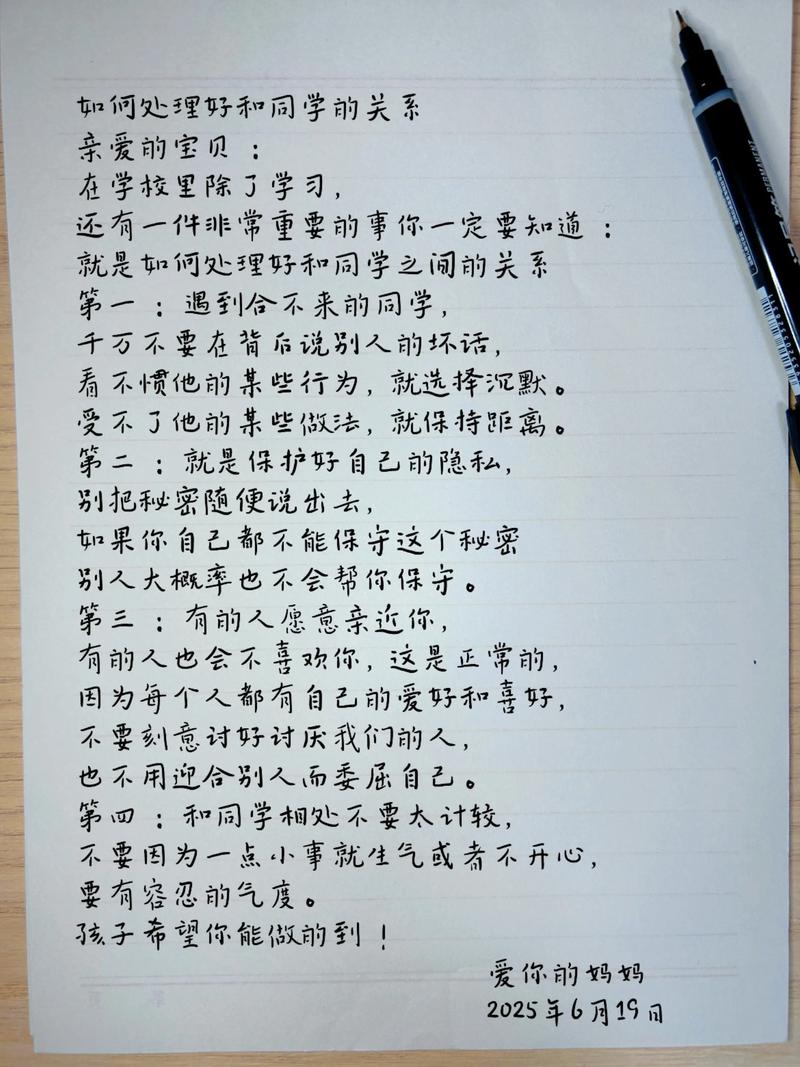 如何处理好和同学的关系
亲爱的宝贝：
在学校里除了学习，
还有一件非常重要的事你一定要知道：
就是如何处理好和同学之间的关系
第一：遇到合不来的同学，
千万不要在背后说别人的坏话，
看不惯他的某些行为，就选择沉默。
受不了他的某些做法，就保持距离。
第二：就是保护好自己的隐私，
别把秘密随便说出去，
如果你自己都不能保守这个秘密
别人大概率也不会帮你保守。
第三：有的人愿意亲近你，
有的人也会不喜欢你，这是正常的，
因为每个人都有自己的爱好和喜好，
不要刻意讨好讨厌我们的人，
也不用迎合别人而委屈自己。
第四：和同学相处不要太计较，
不要因为一点小事就生气或者不开心，
要有容忍的气度。
孩子希望你能做的到！
爱你的妈妈
2025年6月19日
PERMANENT